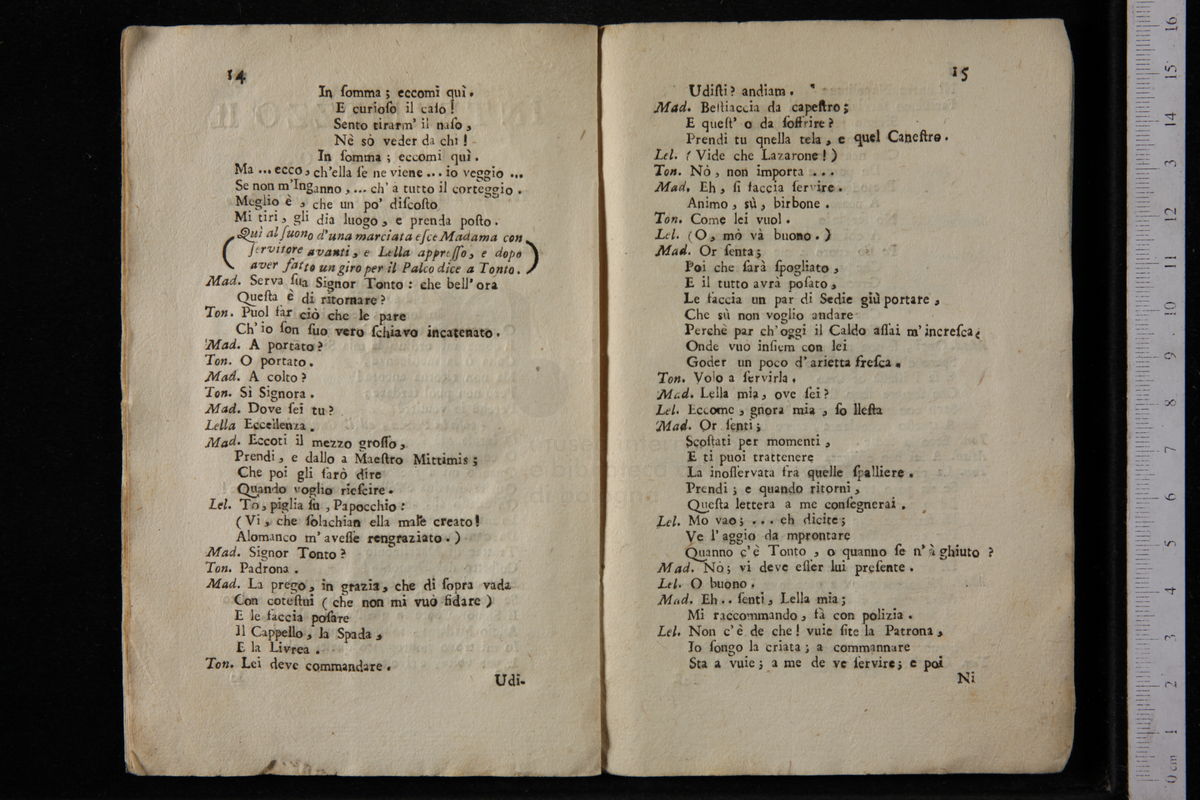 14
In ſomma ; eccomi quì.
E curioſo il caſo !
Sento tirarm' il naſo ,
Nè sò veder da chi !
In ſomma ; eccomi quì.
Ma ... ecco, ch'ella ſe ne viene ... io veggio ...
Se non m'Inganno , ... ch' a tutto il corteggio .
Meglio è , che un po' diſcoſto
Mi tiri , gli dia luogo , e prenda poſto .
(Quì al ſuono d'una marciata eſce Madama con
ſervitore avanti , e Lella appreſſo , e dopo
aver fatto un giro per il Palco dice a Tonto.)
Mad. Serva ſua Signor Tonto : che bell' ora
Queſta è di ritornare ?
Ton. Puol far ciò che le pare
Ch' io ſon ſuo vero ſchiavo incatenato .
Mad. A portato ?
Ton. O portato .
Mad. A colto ?
Ton. Sì Signora .
Mad. Dove ſei tu ?
Lella Eccellenza .
Mad. Eccoti il mezzo groſſo ,
Prendi , e dallo a Maeſtro Mittimis ;
Che poi gli farò dire
Quando voglio rieſcire .
Lel. To , piglia ſu , Papocchio :
( Vi , che ſolachian ella male creato !
Alomanco m' aveſſe rengraziato . )
Mad. Signor Tonto ?
Ton. Padrona .
Mad. La prego , in grazia , che di ſopra vada
Con coteſtui ( che non mi vuò fidare )
E le faccia poſare
Il Cappello , la Spada ,
E la Livrea .
Ton. Lei deve commandare .
Udi-
15
Udiſti ? andiam .
Mad. Beſtiaccia da capeſtro ;
E queſt' o da ſoffrire ?
Prendi tu qnella tela , e quel Caneſtro .
Lel. ( Vide che Lazarone ! )
Ton. Nò , non importa ...
Mad. Eh , ſi faccia ſervire .
Animo , sù , birbone .
Ton. Come lei vuol .
Lel. ( O , mò và buono . )
Mad. Or ſenta ;
Poi che ſarà ſpogliato ,
E il tutto avrà poſato ,
Le faccia un par di Sedie giù portare ,
Che sù non voglio andare
Perchè par ch' oggi il Caldo aſſai m' increſca ;
Onde vuo inſiem con lei
Goder un poco d' arietta freſca .
Ton. Volo a ſervirla .
Mad. Lella mia , ove ſei ?
Lel. Eccome , gnora mia , ſo lleſta
Mad. Or ſenti ;
Scoſtati per momenti ,
E ti puoi trattenere
La inoſſervata fra quelle ſpalliere .
Prendi ; e quando ritorni ,
Queſta lettera a me conſegnerai .
Lel. Mo vao ; ... eh dicite ;
Ve l' aggio da mprontare
Quanno c'è Tonto , o quanno ſe n' à ghiuto ?
Mad. Nò ; vi deve eſſer lui preſente .
Lel. O buono .
Mad. Eh .. ſenti , Lella mia ;
Mi raccommando , fà con polizia .
Lel. Non c'è de che ! vuie ſite la Patrona ,
Io ſongo la criata ; a commannare
Sta a vuie ; a me de ve ſervire ; e poi
Ni
0 cm 1 2 3 4 5 6 7 8 9 10 11 12 13 14 15 16